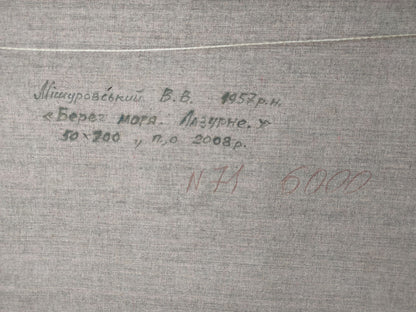 Мішуровський В.В. 1957р.н.
«Берег моря. Лазурне.»
50×700, п,о 2008р.
N71 6000